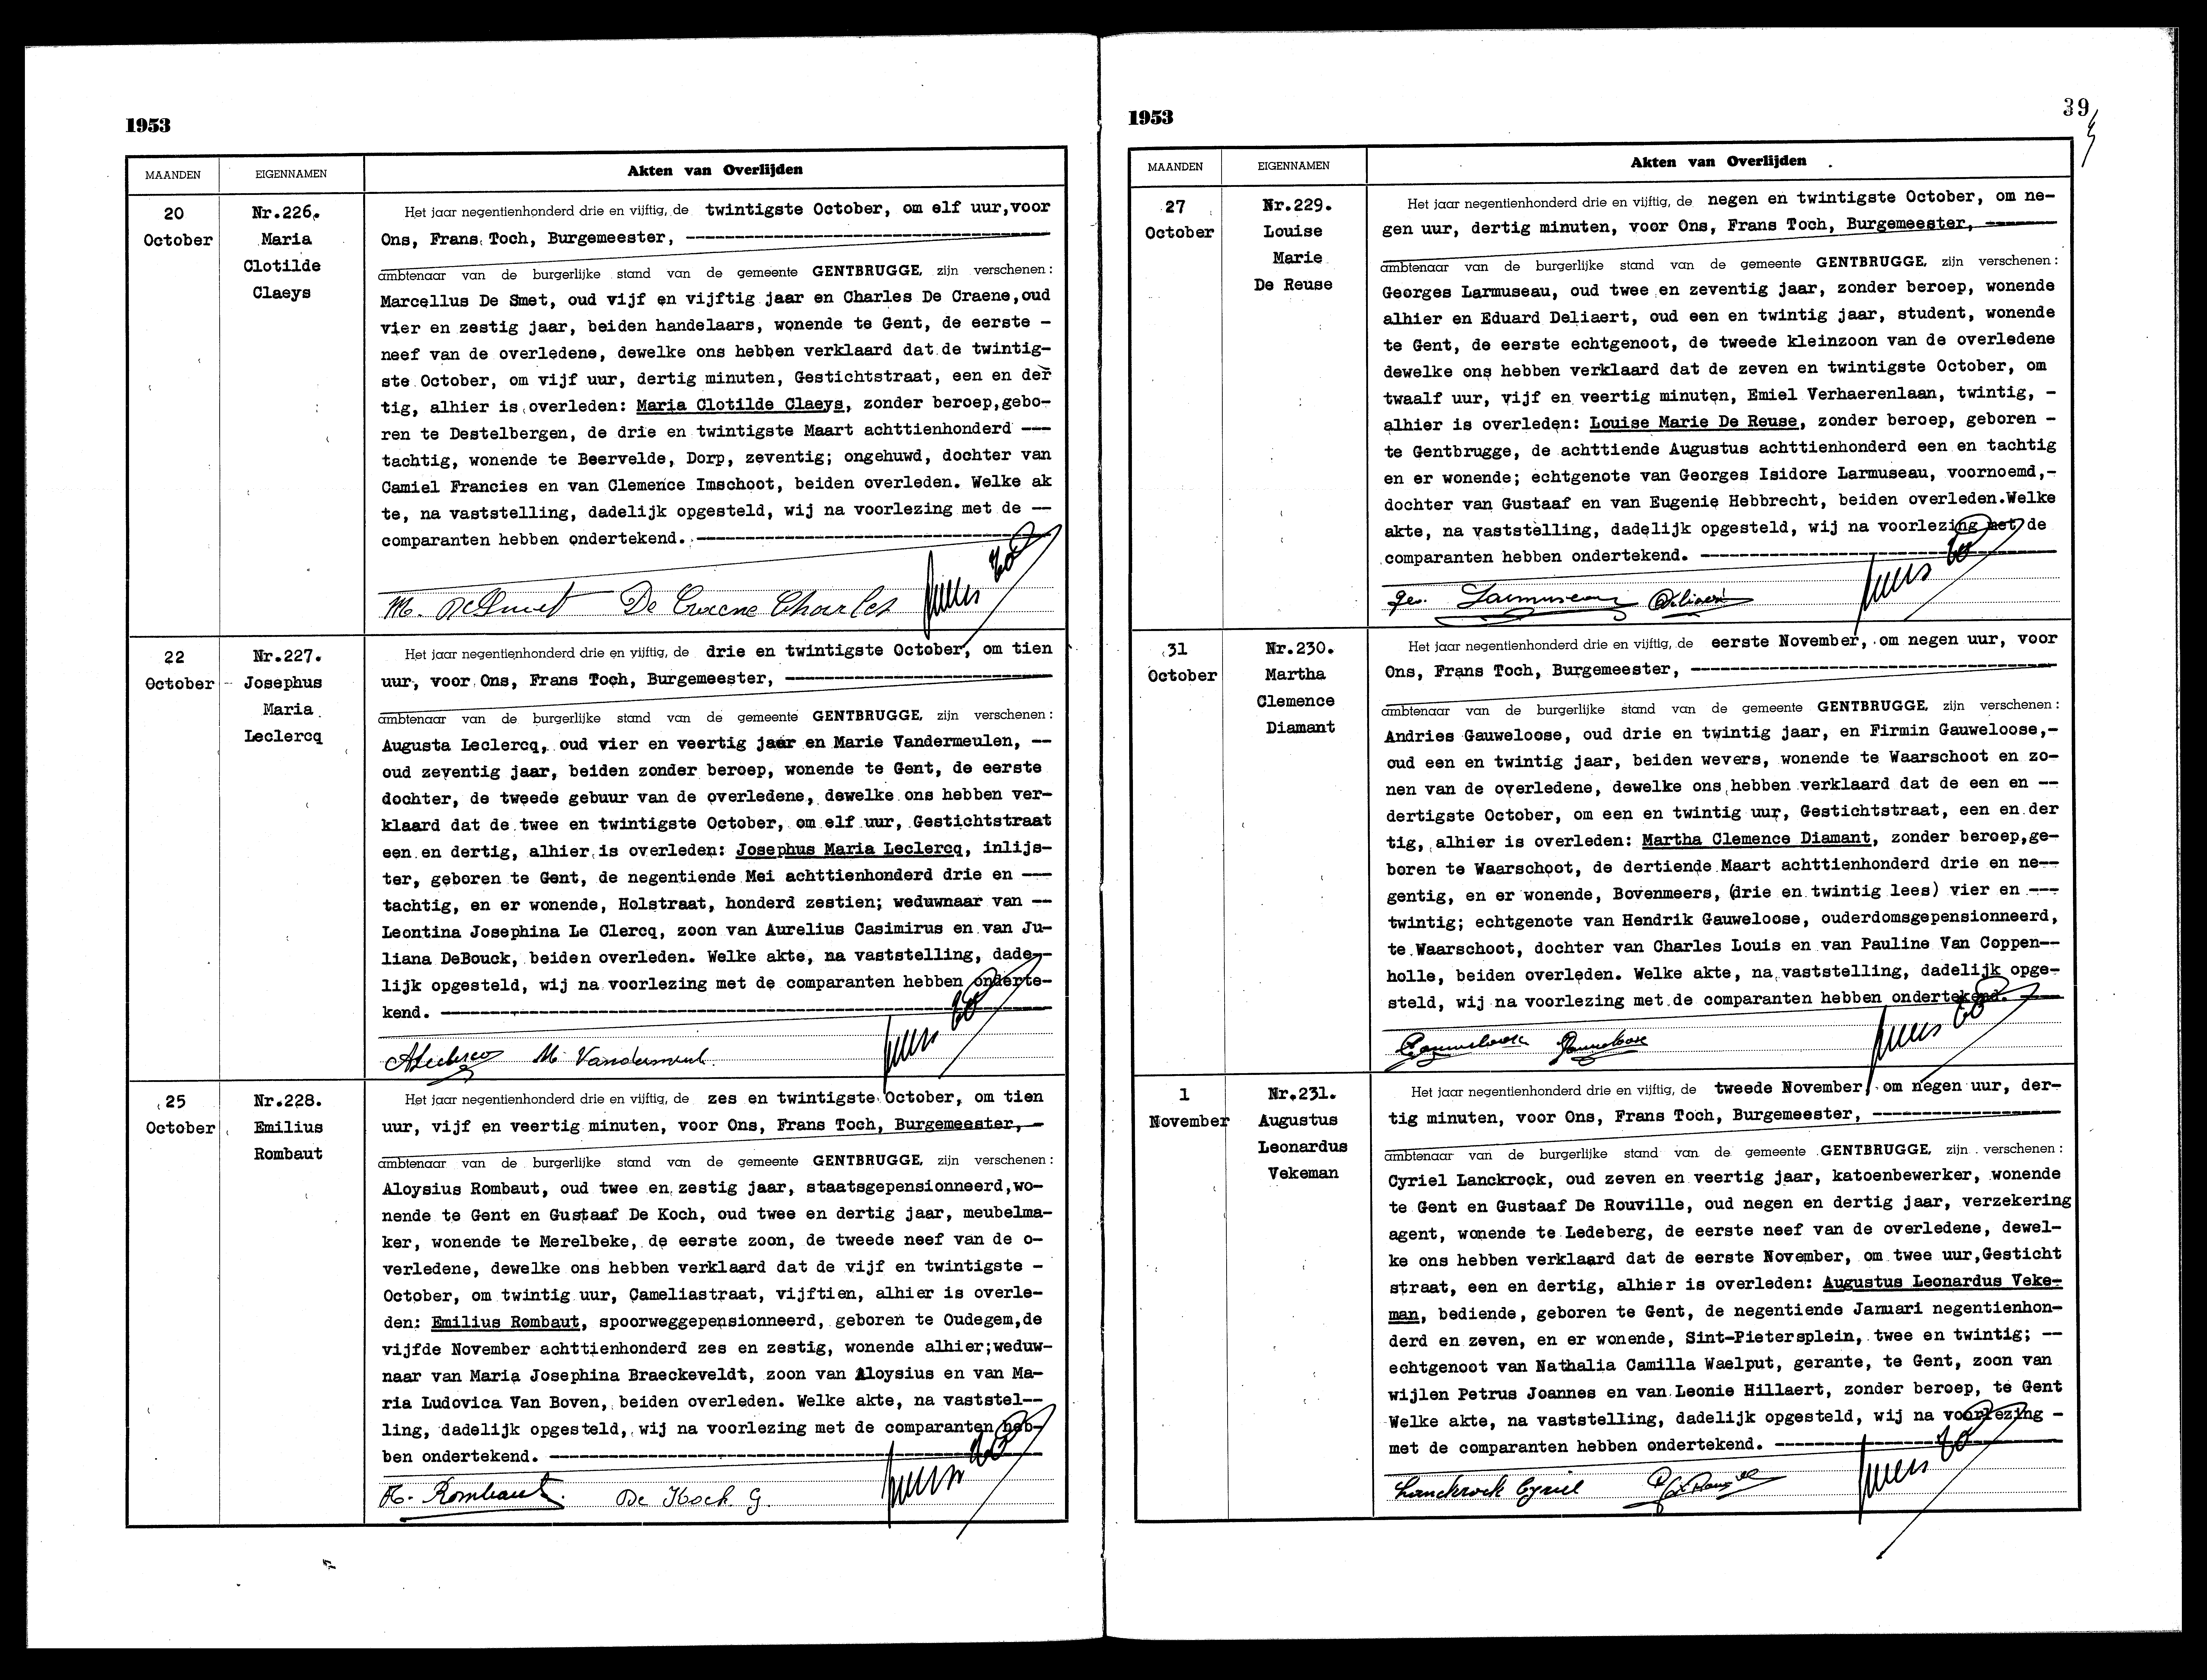 1953
MAANDEN
EIGENNAMEN
Akten van Overlijden
20
October
Nr.226.
Maria
Clotilde
Claeys
Het jaar negentienhonderd drie en vijftig, de twintigste October, om elf uur,voor
Ons, Frans Toch, Burgemeester,
ambtenaar van de burgerlijke stand van de gemeente GENTBRUGGE, zijn verschenen:
Marcellus De Smet, oud vijf en vijftig jaar en Charles De Craene,oud
vier en zestig jaar, beiden handelaars, wonende te Gent, de eerste -
neef van de overledene, dewelke ons hebben verklaard dat de twintig-
ste October, om vijf uur, dertig minuten, Gestichtstraat, een en der
tig, alhier is overleden: Maria Clotilde Claeys, zonder beroep,gebo-
ren te Destelbergen, de drie en twintigste Maart achttienhonderd ---
tachtig, wonende te Beervelde, Dorp, zeventig; ongehuwd, dochter van
Camiel Francies en van Clemence Imschoot, beiden overleden. Welke ak
te, na vaststelling, dadelijk opgesteld, wij na voorlezing met de --
comparanten hebben ondertekend.
M. De Smet De Craene Charles
22
October
Nr.227.
Josephus
Maria
Leclercq
Het jaar negentienhonderd drie en vijftig, de drie en twintigste October, om tien
uur, voor Ons, Frans Toch, Burgemeester,
ambtenaar van de burgerlijke stand van de gemeente GENTBRUGGE, zijn verschenen:
Augusta Leclercq, oud vier en veertig jaar en Marie Vandermeulen, --
oud zeventig jaar, beiden zonder beroep, wonende te Gent, de eerste
dochter, de tweede gebuur van de overledene, dewelke ons hebben ver-
klaard dat de twee en twintigste October, om elf uur, Gestichtstraat
een en dertig, alhier is overleden: Josephus Maria Leclercq, inlijs-
ter, geboren te Gent, de negentiende Mei achttienhonderd drie en ---
tachtig, en er wonende, Holstraat, honderd zestien; weduwnaar van --
Leontina Josephina Le Clercq, zoon van Aurelius Casimirus en van Ju-
liana DeBouck, beiden overleden. Welke akte, na vaststelling, dade--
lijk opgesteld, wij na voorlezing met de comparanten hebben onderte-
kend.
ALeclercq M. Vandermeul
25
October
Nr.228.
Emilius
Rombaut
Het jaar negentienhonderd drie en vijftig, de zes en twintigste October, om tien
uur, vijf en veertig minuten, voor Ons, Frans Toch, Burgemeester,-
ambtenaar van de burgerlijke stand van de gemeente GENTBRUGGE, zijn verschenen:
Aloysius Rombaut, oud twee en zestig jaar, staatsgepensionneerd,wo-
nende te Gent en Gustaaf De Koch, oud twee en dertig jaar, meubelma-
ker, wonende te Merelbeke, de eerste zoon, de tweede neef van de o-
verledene, dewelke ons hebben verklaard dat de vijf en twintigste -
October, om twintig uur, Cameliastraat, vijftien, alhier is overle-
den: Emilius Rombaut, spoorweggepensionneerd, geboren te Oudegem,de
vijfde November achttienhonderd zes en zestig, wonende alhier;weduw-
naar van Maria Josephina Braeckeveldt, zoon van Aloysius en van Ma-
ria Ludovica Van Boven, beiden overleden. Welke akte, na vaststel--
ling, dadelijk opgesteld, wij na voorlezing met de comparanten heb-
ben ondertekend.
A. Rombaut. De Koch G.
1953
39
MAANDEN
EIGENNAMEN
Akten van Overlijden
27
October
Nr.229.
Louise
Marie
De Reuse
Het jaar negentienhonderd drie en vijftig, de negen en twintigste October, om ne-
gen uur, dertig minuten, voor Ons, Frans Toch, Burgemeester,
ambtenaar van de burgerlijke stand van de gemeente GENTBRUGGE, zijn verschenen:
Georges Larmuseau, oud twee en zeventig jaar, zonder beroep, wonende
alhier en Eduard Deliaert, oud een en twintig jaar, student, wonende
te Gent, de eerste echtgenoot, de tweede kleinzoon van de overledene
dewelke ons hebben verklaard dat de zeven en twintigste October, om
twaalf uur, vijf en veertig minuten, Emiel Verhaerenlaan, twintig, -
alhier is overleden: Louise Marie De Reuse, zonder beroep, geboren -
te Gentbrugge, de achttiende Augustus achttienhonderd een en tachtig
en er wonende; echtgenote van Georges Isidore Larmuseau, voornoemd,-
dochter van Gustaaf en van Eugenie Hebbrecht, beiden overleden.Welke
akte, na vaststelling, dadelijk opgesteld, wij na voorlezing met de
comparanten hebben ondertekend.
Geo. Larmuseau Deliaert
31
October
Nr.230.
Martha
Clemence
Diamant
Het jaar negentienhonderd drie en vijftig, de eerste November, om negen uur, voor
Ons, Frans Toch, Burgemeester,
ambtenaar van de burgerlijke stand van de gemeente GENTBRUGGE, zijn verschenen:
Andries Gauweloose, oud drie en twintig jaar, en Firmin Gauweloose,-
oud een en twintig jaar, beiden wevers, wonende te Waarschoot en zo-
nen van de overledene, dewelke ons hebben verklaard dat de een en --
dertigste October, om een en twintig uur, Gestichtstraat, een en der
tig, alhier is overleden: Martha Clemence Diamant, zonder beroep,ge-
boren te Waarschoot, de dertiende Maart achttienhonderd drie en ne--
gentig, en er wonende, Bovenmeers, (drie en twintig lees) vier en ---
twintig; echtgenote van Hendrik Gauweloose, ouderdomsgepensionneerd,
te Waarschoot, dochter van Charles Louis en van Pauline Van Coppen--
holle, beiden overleden. Welke akte, na vaststelling, dadelijk opge-
steld, wij na voorlezing met de comparanten hebben ondertekend.
Gauweloose Gauweloose
1
November
Nr.231.
Augustus
Leonardus
Vekeman
Het jaar negentienhonderd drie en vijftig, de tweede November, om negen uur, der-
tig minuten, voor Ons, Frans Toch, Burgemeester,
ambtenaar van de burgerlijke stand van de gemeente GENTBRUGGE, zijn verschenen:
Cyriel Lanckrock, oud zeven en veertig jaar, katoenbewerker, wonende
te Gent en Gustaaf De Rouville, oud negen en dertig jaar, verzekering
agent, wonende te Ledeberg, de eerste neef van de overledene, dewel-
ke ons hebben verklaard dat de eerste November, om twee uur,Gesticht
straat, een en dertig, alhier is overleden: Augustus Leonardus Veke-
man, bediende, geboren te Gent, de negentiende Januari negentienhon-
derd en zeven, en er wonende, Sint-Pietersplein, twee en twintig; --
echtgenoot van Nathalia Camilla Waelput, gerante, te Gent, zoon van
wijlen Petrus Joannes en van Leonie Hillaert, zonder beroep, te Gent
Welke akte, na vaststelling, dadelijk opgesteld, wij na voorlezing -
met de comparanten hebben ondertekend.
Lanckrock Cyriel